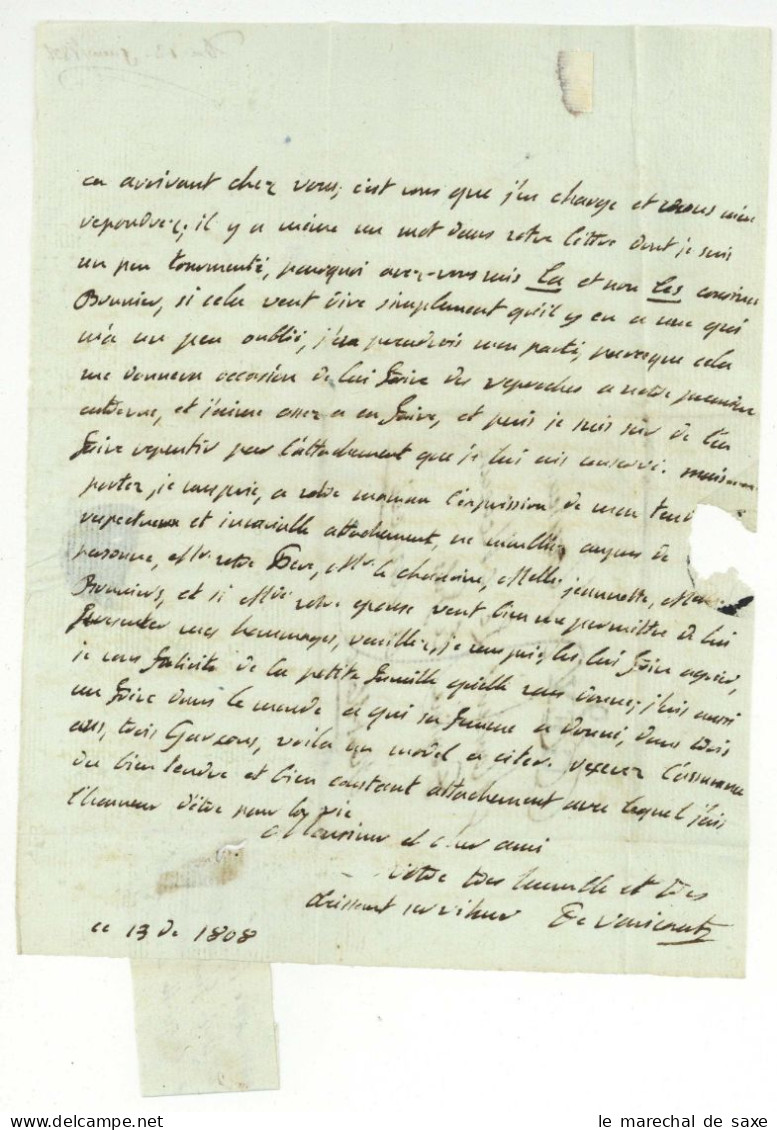 en arrivant chez vous; c'est vous que j'en charge et vous m'en
repondrez; il y a même un mot dans votre lettre dont je suis
un peu tourmenté, pourquoi avez-vous mis La et non Les cousines
Bunnier, si cela veut dire simplement qu'il y en a une qui
m'a un peu oublié, j'en prendrois mon parti, parceque cela
me donnera occasion de lui faire des reproches a notre première
entrevue, et j'aime assez a en faire, et puis je suis sur de l'en
faire repentir par l'attachement que je lui ai conservé.
portez, je vous prie, a votre maman l'expression de mon tend
respectueux et inviolable attachement, ne m'oubliez aupres de
personne, Mr votre Pere, Mr le chanoine, Melle jeannette, 
Bunniers, et si Mde votre epouse veut bien me permettre de lui
presenter mes hommages, veuillez, je vous prie, les lui faire agréer,
je vous felicite de la petite famille qu'elle vous donne; j'ai aussi
un frère dans le monde a qui sa femme a donné, dans trois
ans, trois Garçons, voila un model a citer. recevez l'assurance
du bien tendre et bien constant attachement avec lequel j'ai
l'honneur d'être pour la vie
Monsieur et cher ami
votre tres humble et tres
obeissant serviteur De varicourt
ce 13 De 1808
le marechal de saxe